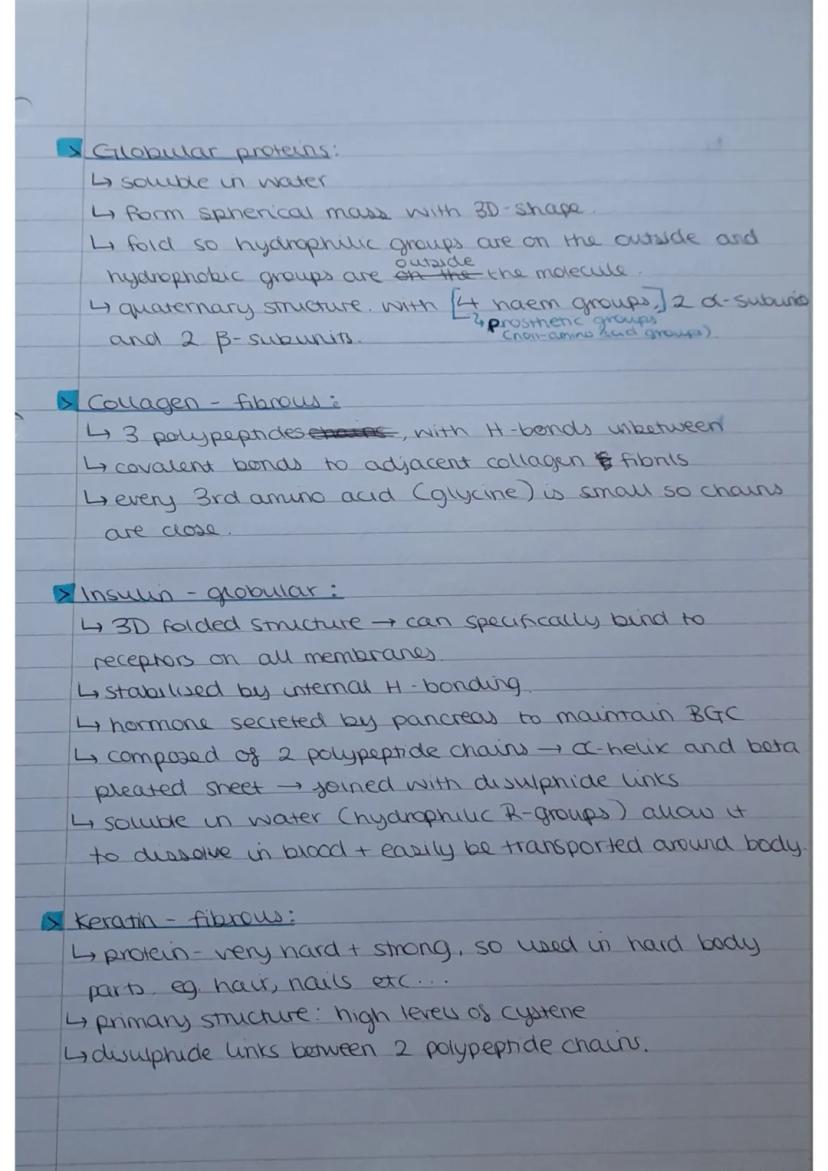 Globular proteins:
↳ soluble in water
↳ form spherical mass with 3D-shape.
↳ fold so hydrophilic groups are on the outside and
outside
hydrophobic groups are on the the molecule.
↳ quaternary structure. with [4 haem groups,] 2 α-subunits
↳ prosthetic groups
(non-amino acid groups).
and 2 β-subunits.
Collagen - fibrous:
↳ 3 polypeptides chains, with H-bonds inbetween
↳ covalent bonds to adjacent collagen fibrils
↳ every 3rd amino acid (glycine) is small so chains
are close.
Insulin - globular:
↳ 3D folded structure → can specifically bind to
receptors on all membranes.
↳ stabilised by internal H-bonding.
↳ hormone secreted by pancreas to maintain BGC
↳ composed of 2 polypeptide chains → α-helix and beta
pleated sheet → joined with disulphide links
↳ soluble in water (hydrophilic R-groups) allow it
to dissolve in blood + easily be transported around body.
Keratin - fibrous:
↳ protein - very hard + strong, so used in hard body
parts. eg. hair, nails etc...
↳ primary structure: high levels of cystene
↳ disulphide links between 2 polypeptide chains.